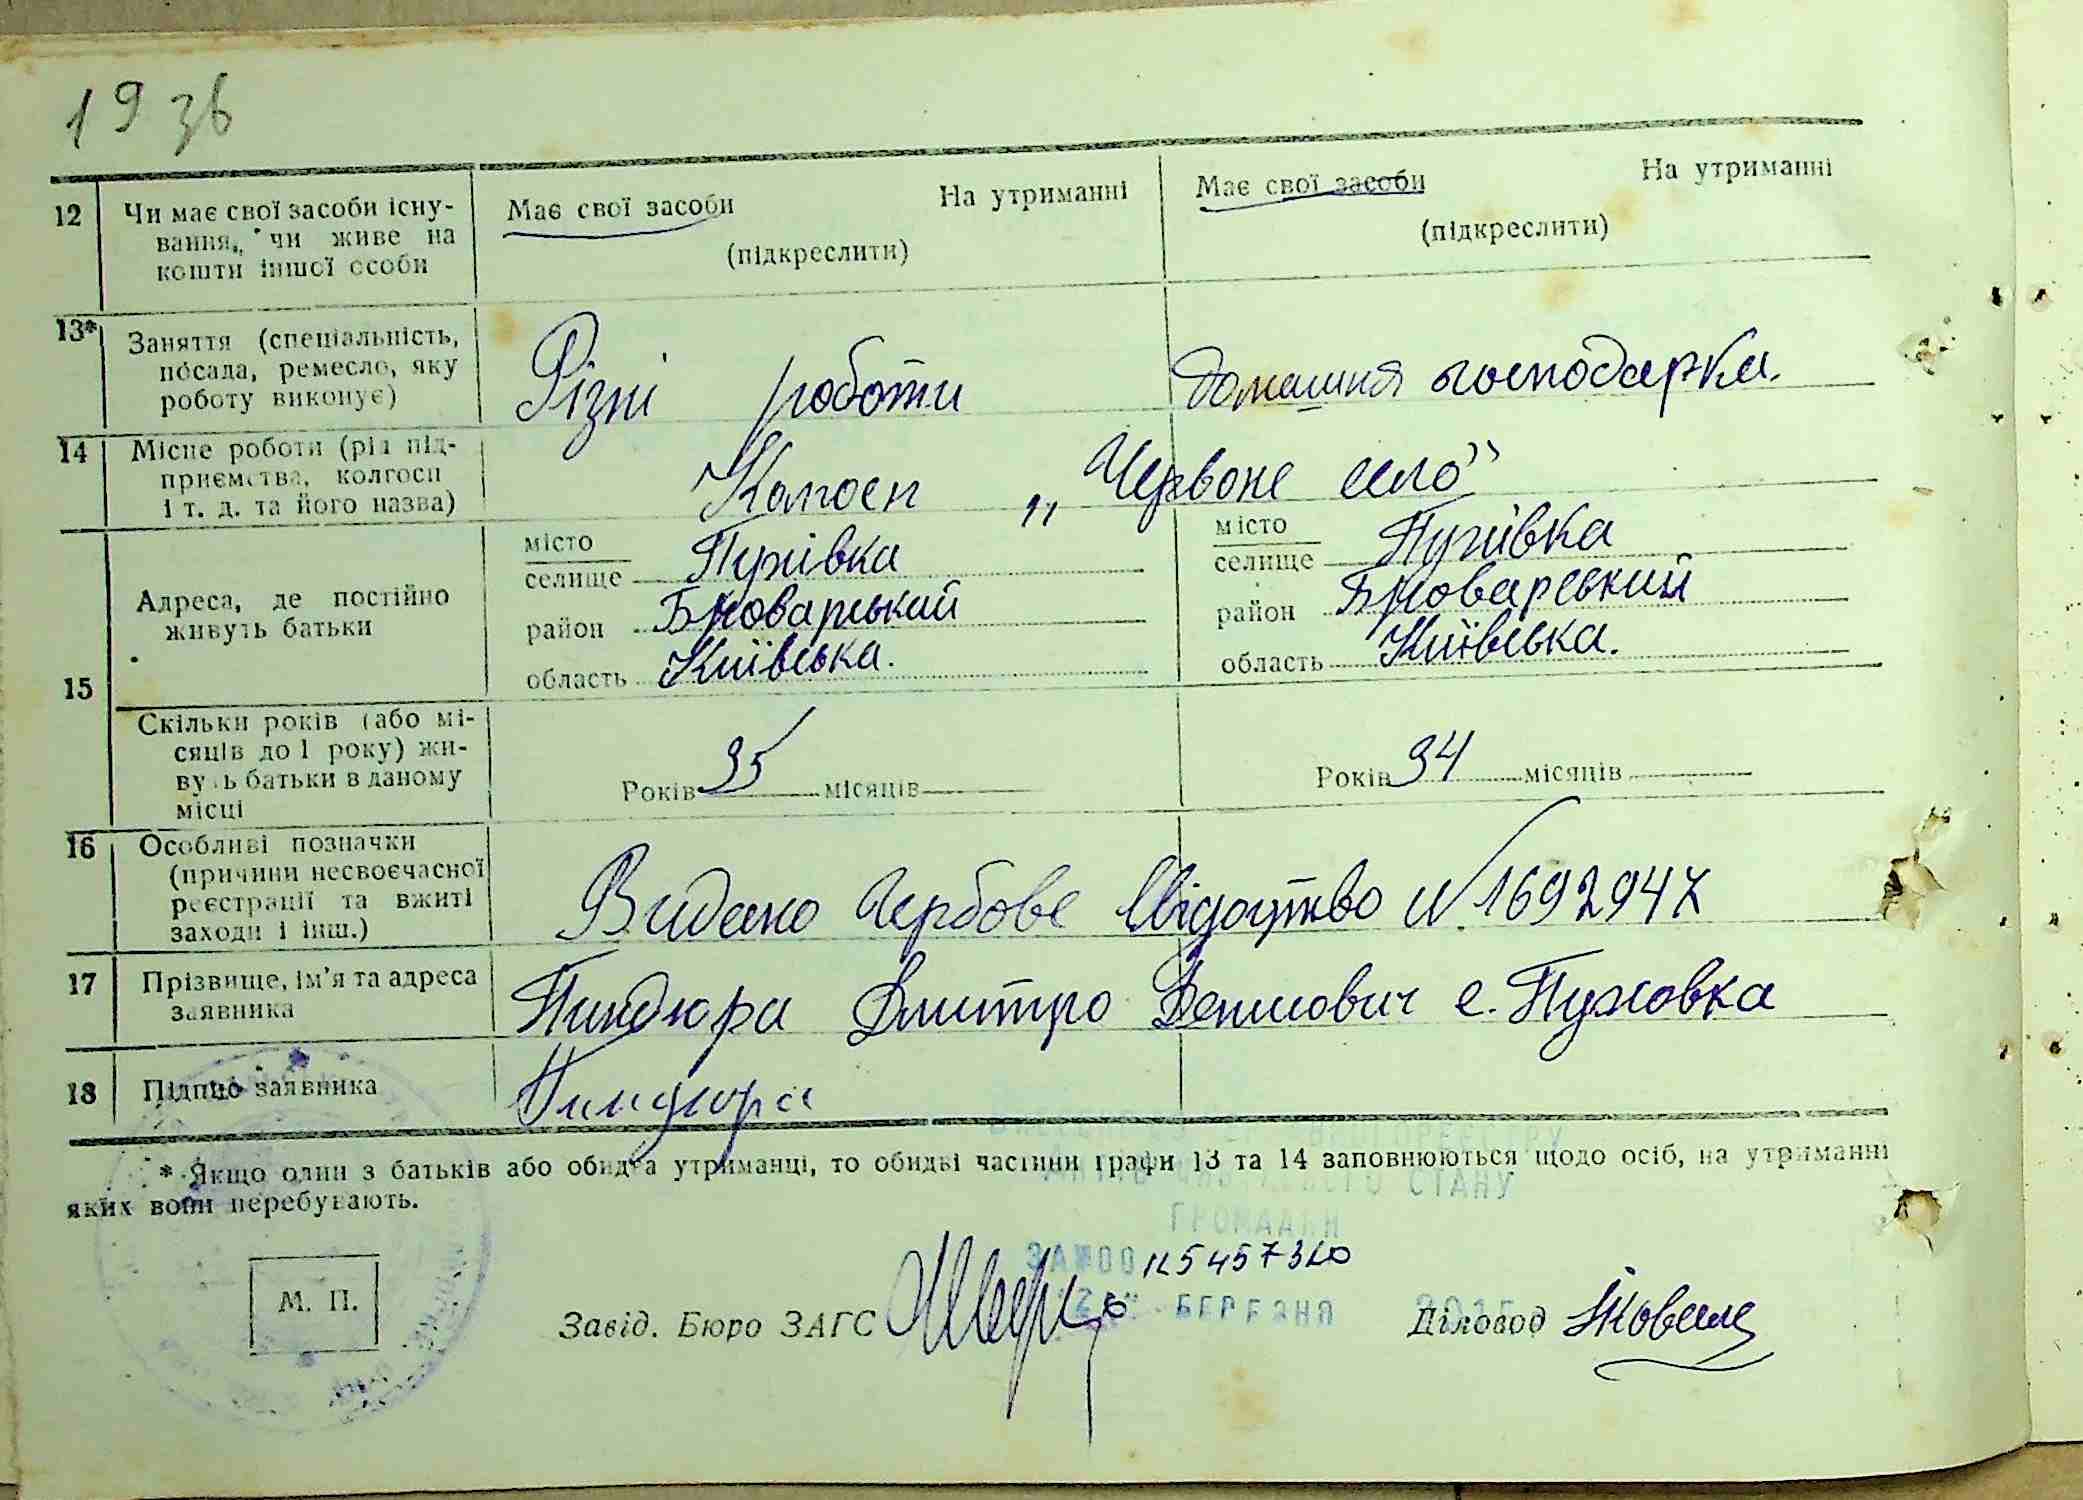 1936
12 Чи має свої засоби існу-
вання, чи живе на
кошти іншої особи
Має свої засоби На утриманні
(підкреслити)
Має свої засоби На утриманні
(підкреслити)
13* Заняття (спеціальність,
посада, ремесло, яку
роботу виконує)
Різні роботи
домашня господарка.
14 Місце роботи (рід під-
приємства, колгосп
і т. д. та його назва)
Колгосп „Червоне село"
15 Адреса, де постійно
живуть батьки
місто
селище Пухівка
район Броварський
область Київська.
місто
селище Пухівка
район Броварський
область Київська.
Скільки років (або мі-
сяців до 1 року) жи-
вуть батьки в даному
місці
Років 35 місяців
Років 34 місяців
16 Особливі позначки
(причини несвоєчасної
реєстрації та вжиті
заходи і інш.)
Видано Гербове Свідоцтво N 1692947
17 Прізвище, ім'я та адреса
заявника
Пиндюра Дмитро Денисович с. Пуховка
18 Підпис заявника
Пиндюра
* Якщо один з батьків або обидва утриманці, то обидві частини графи 13 та 14 заповнюються щодо осіб, на утриманні
яких вони перебувають.
СТАНУ
ГРОМАДЯН
М. П.
Завід. Бюро ЗАГС
БЕРЕЗНЯ 2015
Діловод